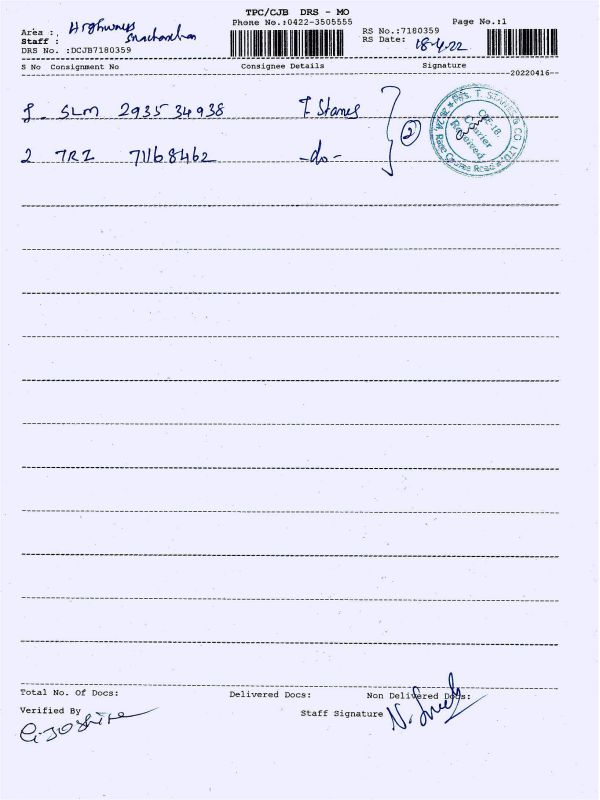 TPC/CJB DRS - MO
Phone No.:0422-3505555 Page No.:1
Area : Highways RS No.:7180359
Staff : RS Date: 18-4-22
DRS No. :DCJB7180359
S No Consignment No Consignee Details Signature
--20220416--
1. SLM 293534938 T Stanes
2 TRZ 71168462 -do- 2
T. STANES & CO. LTD.
Courier
Received
Race Course Road
Total No. Of Docs: Delivered Docs: Non Delivered Docs:
Verified By
Staff Signature